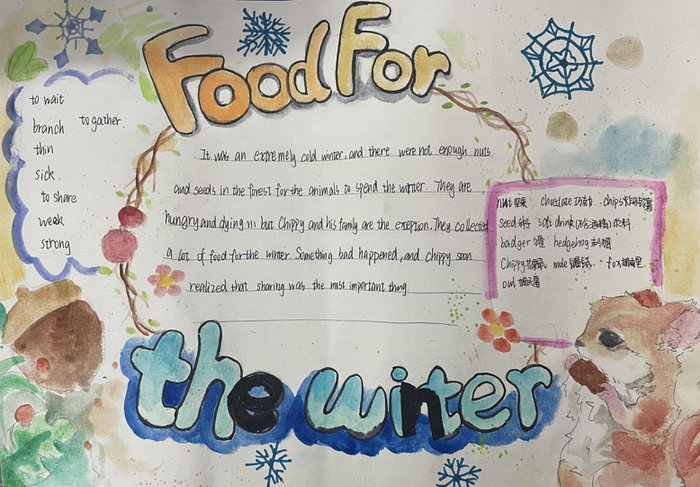 Food For
to wait
branch to gather
thin
sick.
to share
weak
strong
It was an extremely cold winter, and there were not enough nuts
and seeds in the forest for the animals to spend the winter. They are
hungry and dying ill but Chippy and his family are the exception. They collected
a lot of food for the winter. Something bad happened, and chippy soon
realized that sharing was the most important thing.
nuts 坚果 chocolate 巧克力 chips
seed 种子 soft drink 饮料
badger hedgehog 刺猬
Chippy mole fox 狐狸
owl
the winter